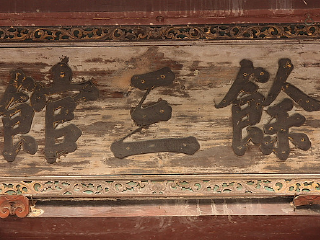 餘三館